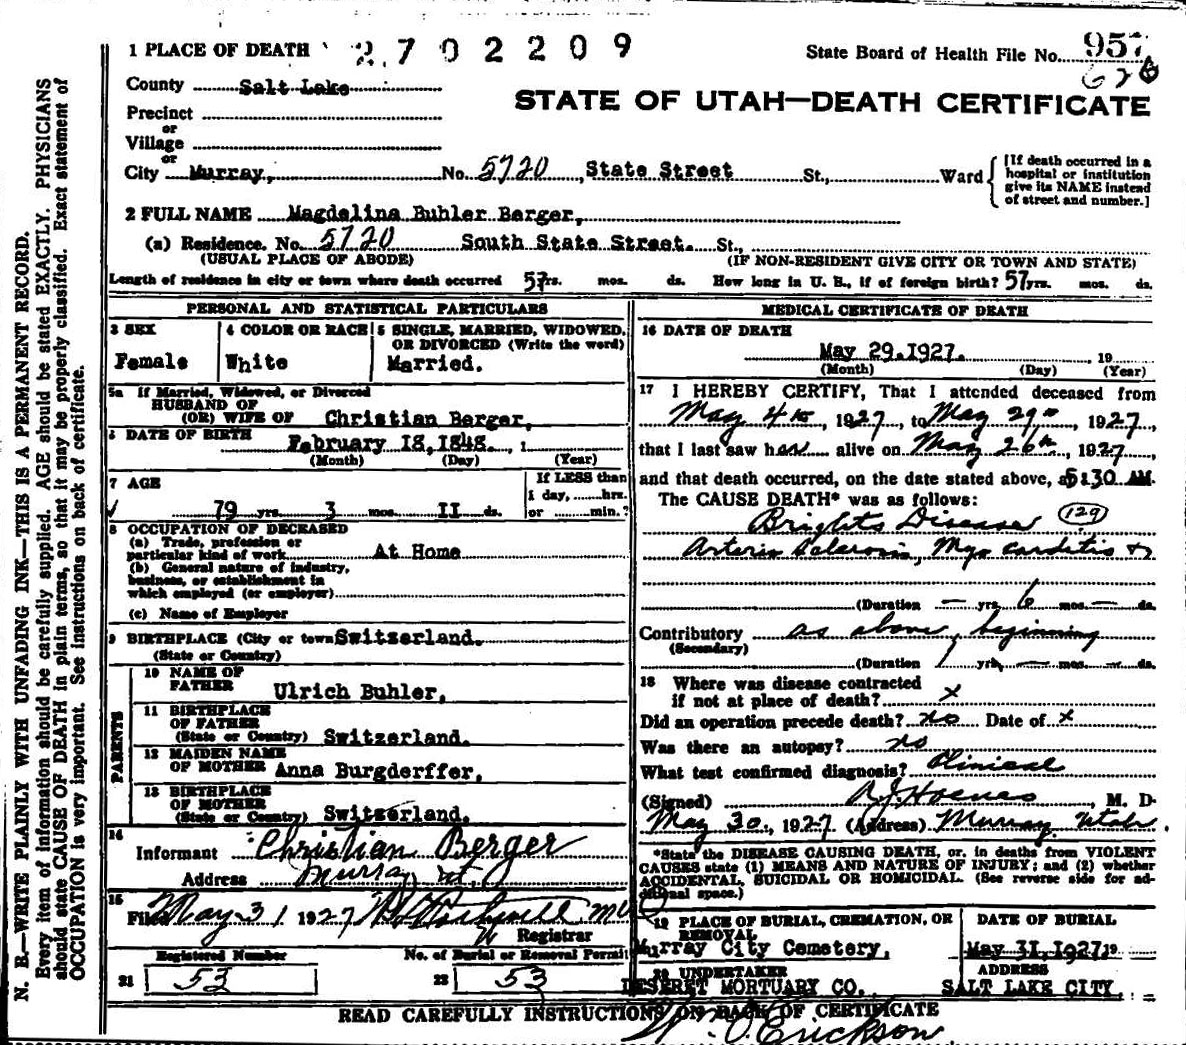 1 PLACE OF DEATH 2702209 State Board of Health File No. 957
620
County Salt Lake
STATE OF UTAH—DEATH CERTIFICATE
Precinct
or
Village
or
City Murray, No. 5720, State Street St., Ward {[If death occurred in a hospital or institution give its NAME instead of street and number.]
2 FULL NAME Magdelina Buhler Berger,
(a) Residence. No. 5720 South State Street. St.,
(USUAL PLACE OF ABODE) (IF NON-RESIDENT GIVE CITY OR TOWN AND STATE)
Length of residence in city or town where death occurred 57 yrs. mos. ds. How long in U. S., if of foreign birth? 57 yrs. mos. ds.
PERSONAL AND STATISTICAL PARTICULARS
3 SEX
Female
4 COLOR OR RACE
White
5 SINGLE, MARRIED, WIDOWED, OR DIVORCED (Write the word)
Married.
5a If Married, Widowed, or Divorced
HUSBAND OF
(OR) WIFE OF Christian Berger,
6 DATE OF BIRTH February 18,1848. , 1
(Month) (Day) (Year)
7 AGE
79 yrs. 3 mos. II ds.
If LESS than
1 day, hrs.
or min.?
8 OCCUPATION OF DECEASED
(a) Trade, profession or
particular kind of work At Home
(b) General nature of industry,
business, or establishment in
which employed (or employer)
(c) Name of Employer
9 BIRTHPLACE (City or town Switzerland.
(State or Country)
PARENTS
10 NAME OF
FATHER Ulrich Buhler,
11 BIRTHPLACE
OF FATHER
(State or Country) Switzerland.
12 MAIDEN NAME
OF MOTHER Anna Burgderffer,
13 BIRTHPLACE
OF MOTHER
(State or Country) Switzerland.
14
Informant Christian Berger
Address Murray ut,
15
Filed May 31 1927
Registrar
Registered Number
21 53
No. of Burial or Removal Permit
22 53
MEDICAL CERTIFICATE OF DEATH
16 DATE OF DEATH
May 29.1927. , 19
(Month) (Day) (Year)
17 I HEREBY CERTIFY, That I attended deceased from
May 4th, 1927, to May 29th, 1927,
that I last saw her alive on May 26th, 1927,
and that death occurred, on the date stated above, at 5:30 AM.
The CAUSE DEATH* was as follows:
Brights Disease (129)
Arterio Sclerosis, Myo carditis &
(Duration — yrs. 6 mos. — ds.
Contributory as above, beginning
(Secondary)
(Duration 1 yrs. — mos. — ds.
18 Where was disease contracted
if not at place of death? x
Did an operation precede death? no Date of x
Was there an autopsy? no
What test confirmed diagnosis? Clinical
(Signed) , M. D.
May 30., 1927 (Address) Murray Utah.
*State the DISEASE CAUSING DEATH, or, in deaths from VIOLENT
CAUSES state (1) MEANS AND NATURE OF INJURY; and (2) whether
ACCIDENTAL, SUICIDAL OR HOMICIDAL. (See reverse side for ad-
ditional space.)
19 PLACE OF BURIAL, CREMATION, OR
REMOVAL
Murray City Cemetery,
DATE OF BURIAL
May 31,1927. 19
20 UNDERTAKER
DESERET MORTUARY CO.,
ADDRESS
SALT LAKE CITY.
READ CAREFULLY INSTRUCTIONS ON BACK OF CERTIFICATE
W. O. Erickson
N. B.—WRITE PLAINLY WITH UNFADING INK—THIS IS A PERMANENT RECORD.
Every item of information should be carefully supplied. AGE should be stated EXACTLY. PHYSICIANS
should state CAUSE OF DEATH in plain terms, so that it may be properly classified. Exact statement of
OCCUPATION is very important. See instructions on back of certificate.